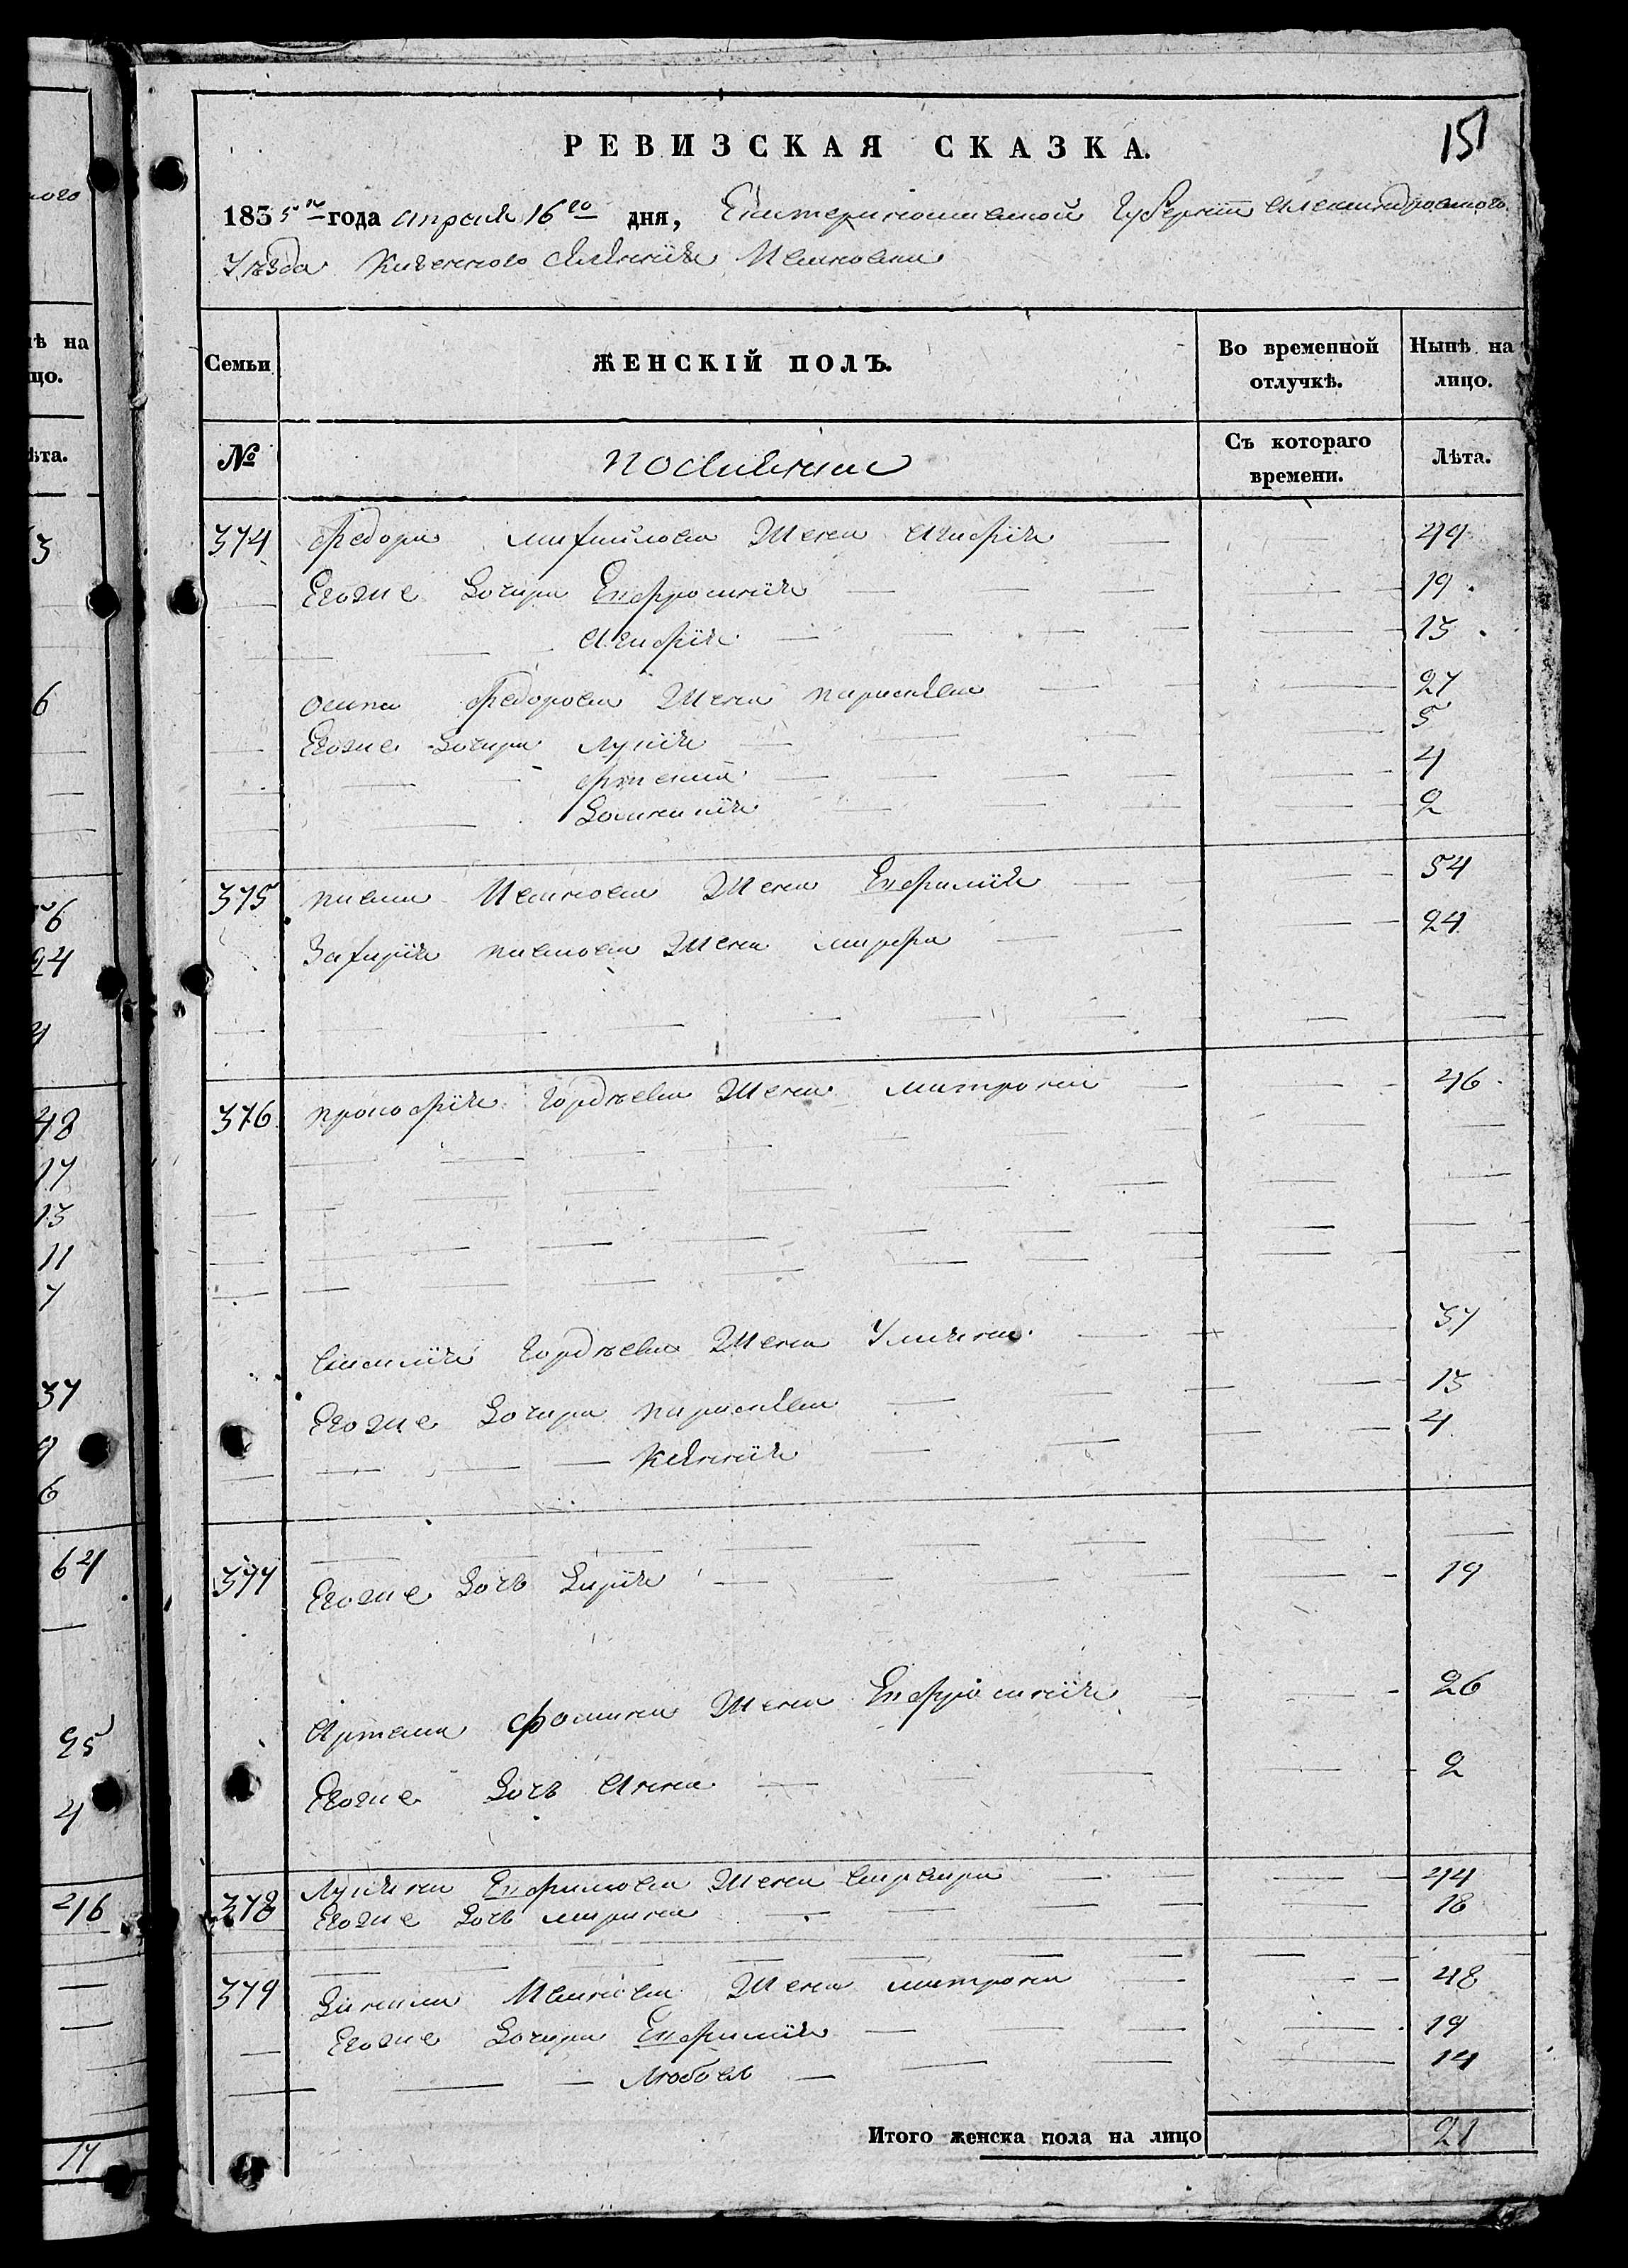 151
РЕВИЗСКАЯ СКАЗКА.
1835 го года апреля 16 го дня, Екатеринославской Губернии Александровского
Уѣзда Казенного селения Ивановки
Семьи
ЖЕНСКІЙ ПОЛЪ.
Во временной отлучкѣ.
Нынѣ на лицо.
№
поселяне
Съ котораго времени.
Лѣта.
374 Федора Михайлова жена Агафія 44
Его же дочери Ефросинія 19
Агафія 13
Осипа Федорова жена параскева 27
Его же дочери Лукія 5
4
Домникія 2
375 павла Иванова жена Ефимія 54
Захарія павлова жена марфа 24
376 прокофія Гордѣева жена матрона 46
Василія Гордѣева жена Уліяна 37
Его же дочери параскева 13
Ксенія 4
377 Его же дочь Дарія 19
Артема Фомина жена Ефросинія 26
Его же дочь Анна 2
378 Лукіяна Ефимова жена варвара 44
Его же дочь марина 18
379 Данила Иванова жена матрона 48
Его же дочери Ефимія 19
Любовь 14
Итого женска пола на лицо 21
нѣ на
цо.
ѣта.
3
6
6
24
48
17
13
11
7
37
9
6
64
25
4
46
17